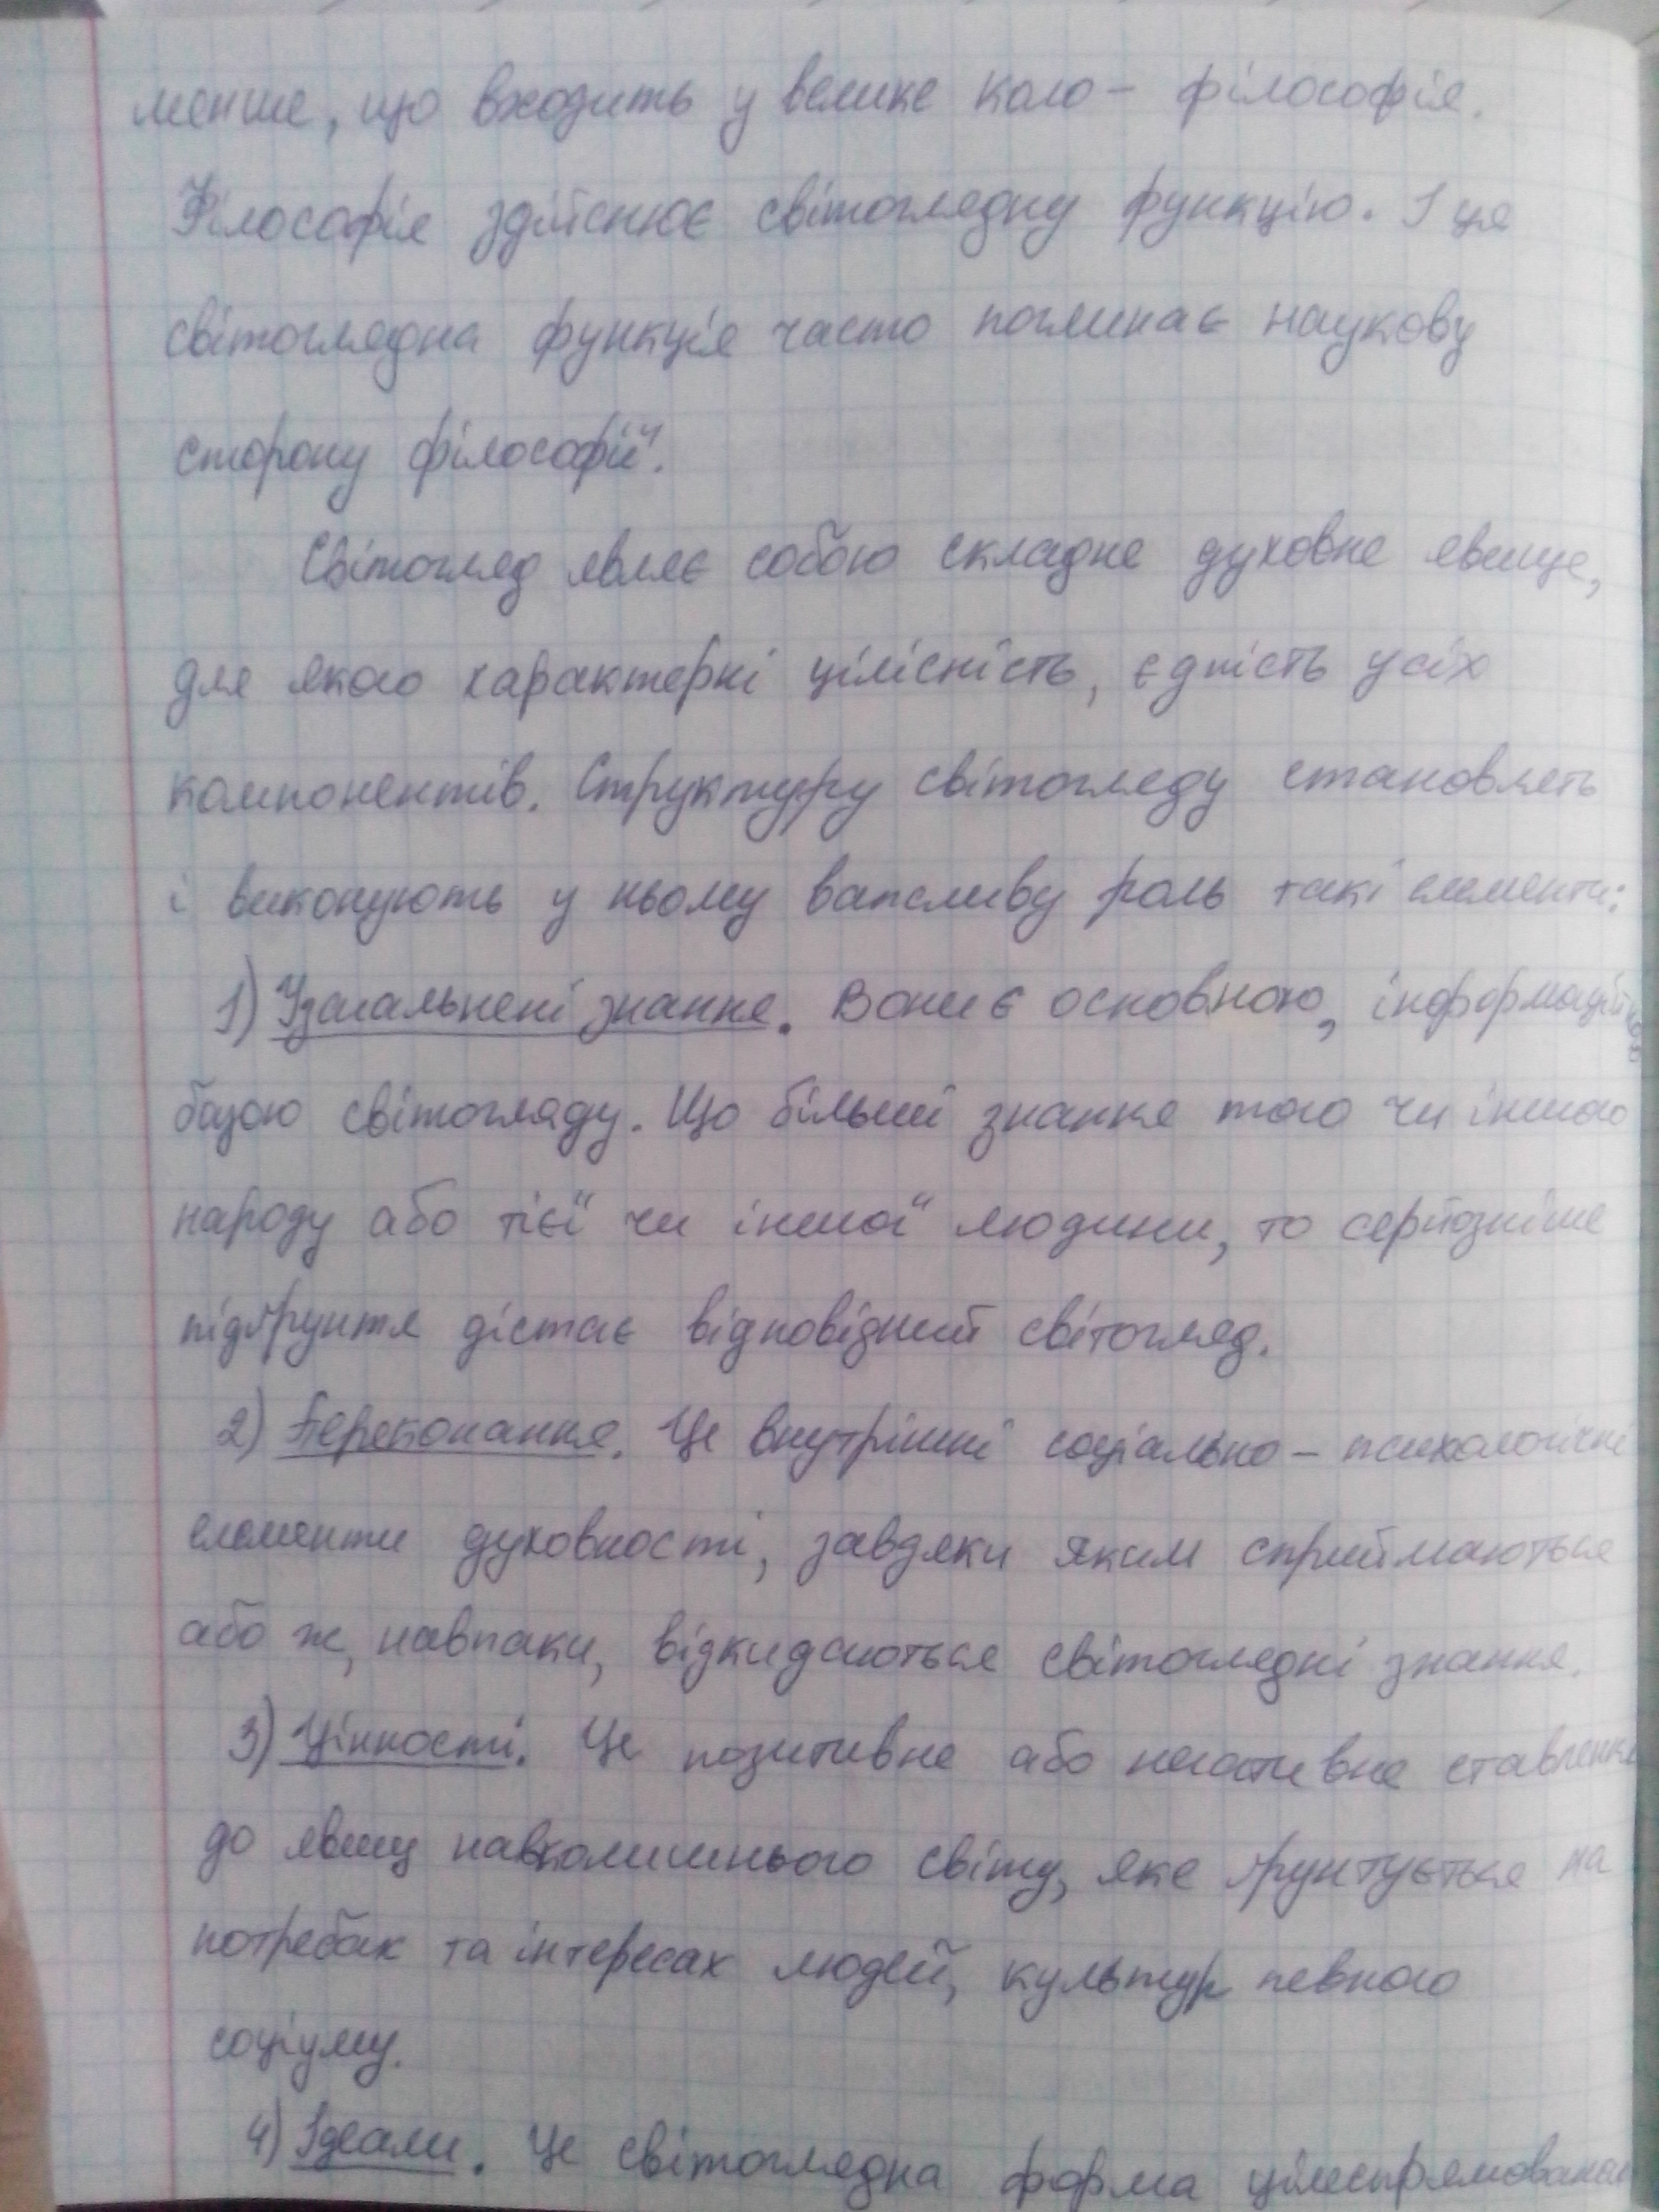 менше, що входить у велике коло – філософія.
Філософія здійснює світоглядну функцію. І ця
світоглядна функція часто поглинає наукову
сторону філософії.
Світогляд являє собою складне духовне явище,
для якого характерні цілісність, єдність усіх
компонентів. Структуру світогляду становлять
і виконують у ньому важливу роль такі елементи:
1) Узагальнені знання. Вони є основною, інформаційною
базою світогляду. Що більші знання того чи іншого
народу або тієї чи іншої людини, то серйозніше
підґрунтя дістає відповідний світогляд.
2) Переконання. Це внутрішні соціально – психологічні
елементи духовності, завдяки яким сприймаються
або ж, навпаки, відкидаються світоглядні знання.
3) Цінності. Це позитивне або негативне ставлення
до явищ навколишнього світу, яке ґрунтується на
потребах та інтересах людей, культур певного
соціуму.
4) Ідеали. Це світоглядна форма